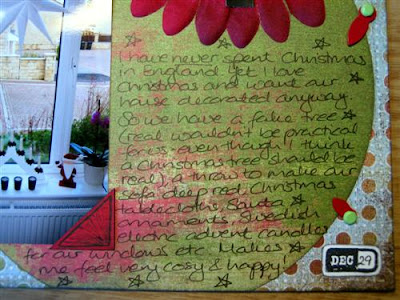 I have never spent Christmas
in England yet I love
Christmas and want our
house decorated anyway.
So we have a fake tree
(real wouldn't be practical
for us even though I think
a Christmas tree should be
real), a throw to make our
sofa deep red, Christmas
tablecloths, Santa
ornaments, Swedish
electric advent candles
for our windows etc. Makes
me feel very cosy & happy!
DEC 29